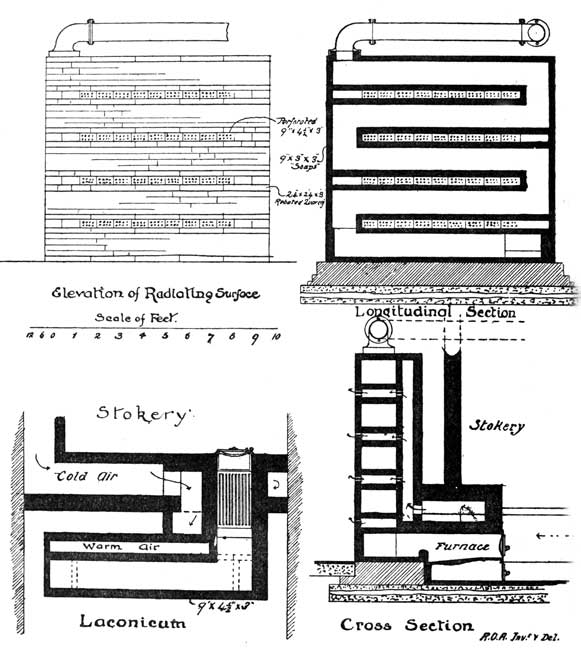 Perforated
9" x 4½" x 3"
9" x 3" x 3"
"Soaps"
Rebated
Elevation of Radiating Surface
Scale of Feet.
12 6 0 1 2 3 4 5 6 7 8 9 10
Longitudinal Section
Stokery.
Cold Air
Warm Air
9" x 4½" x 3"
Laconicum
Stokery
Furnace
Cross Section
R.O.A. Inv.t & Del.